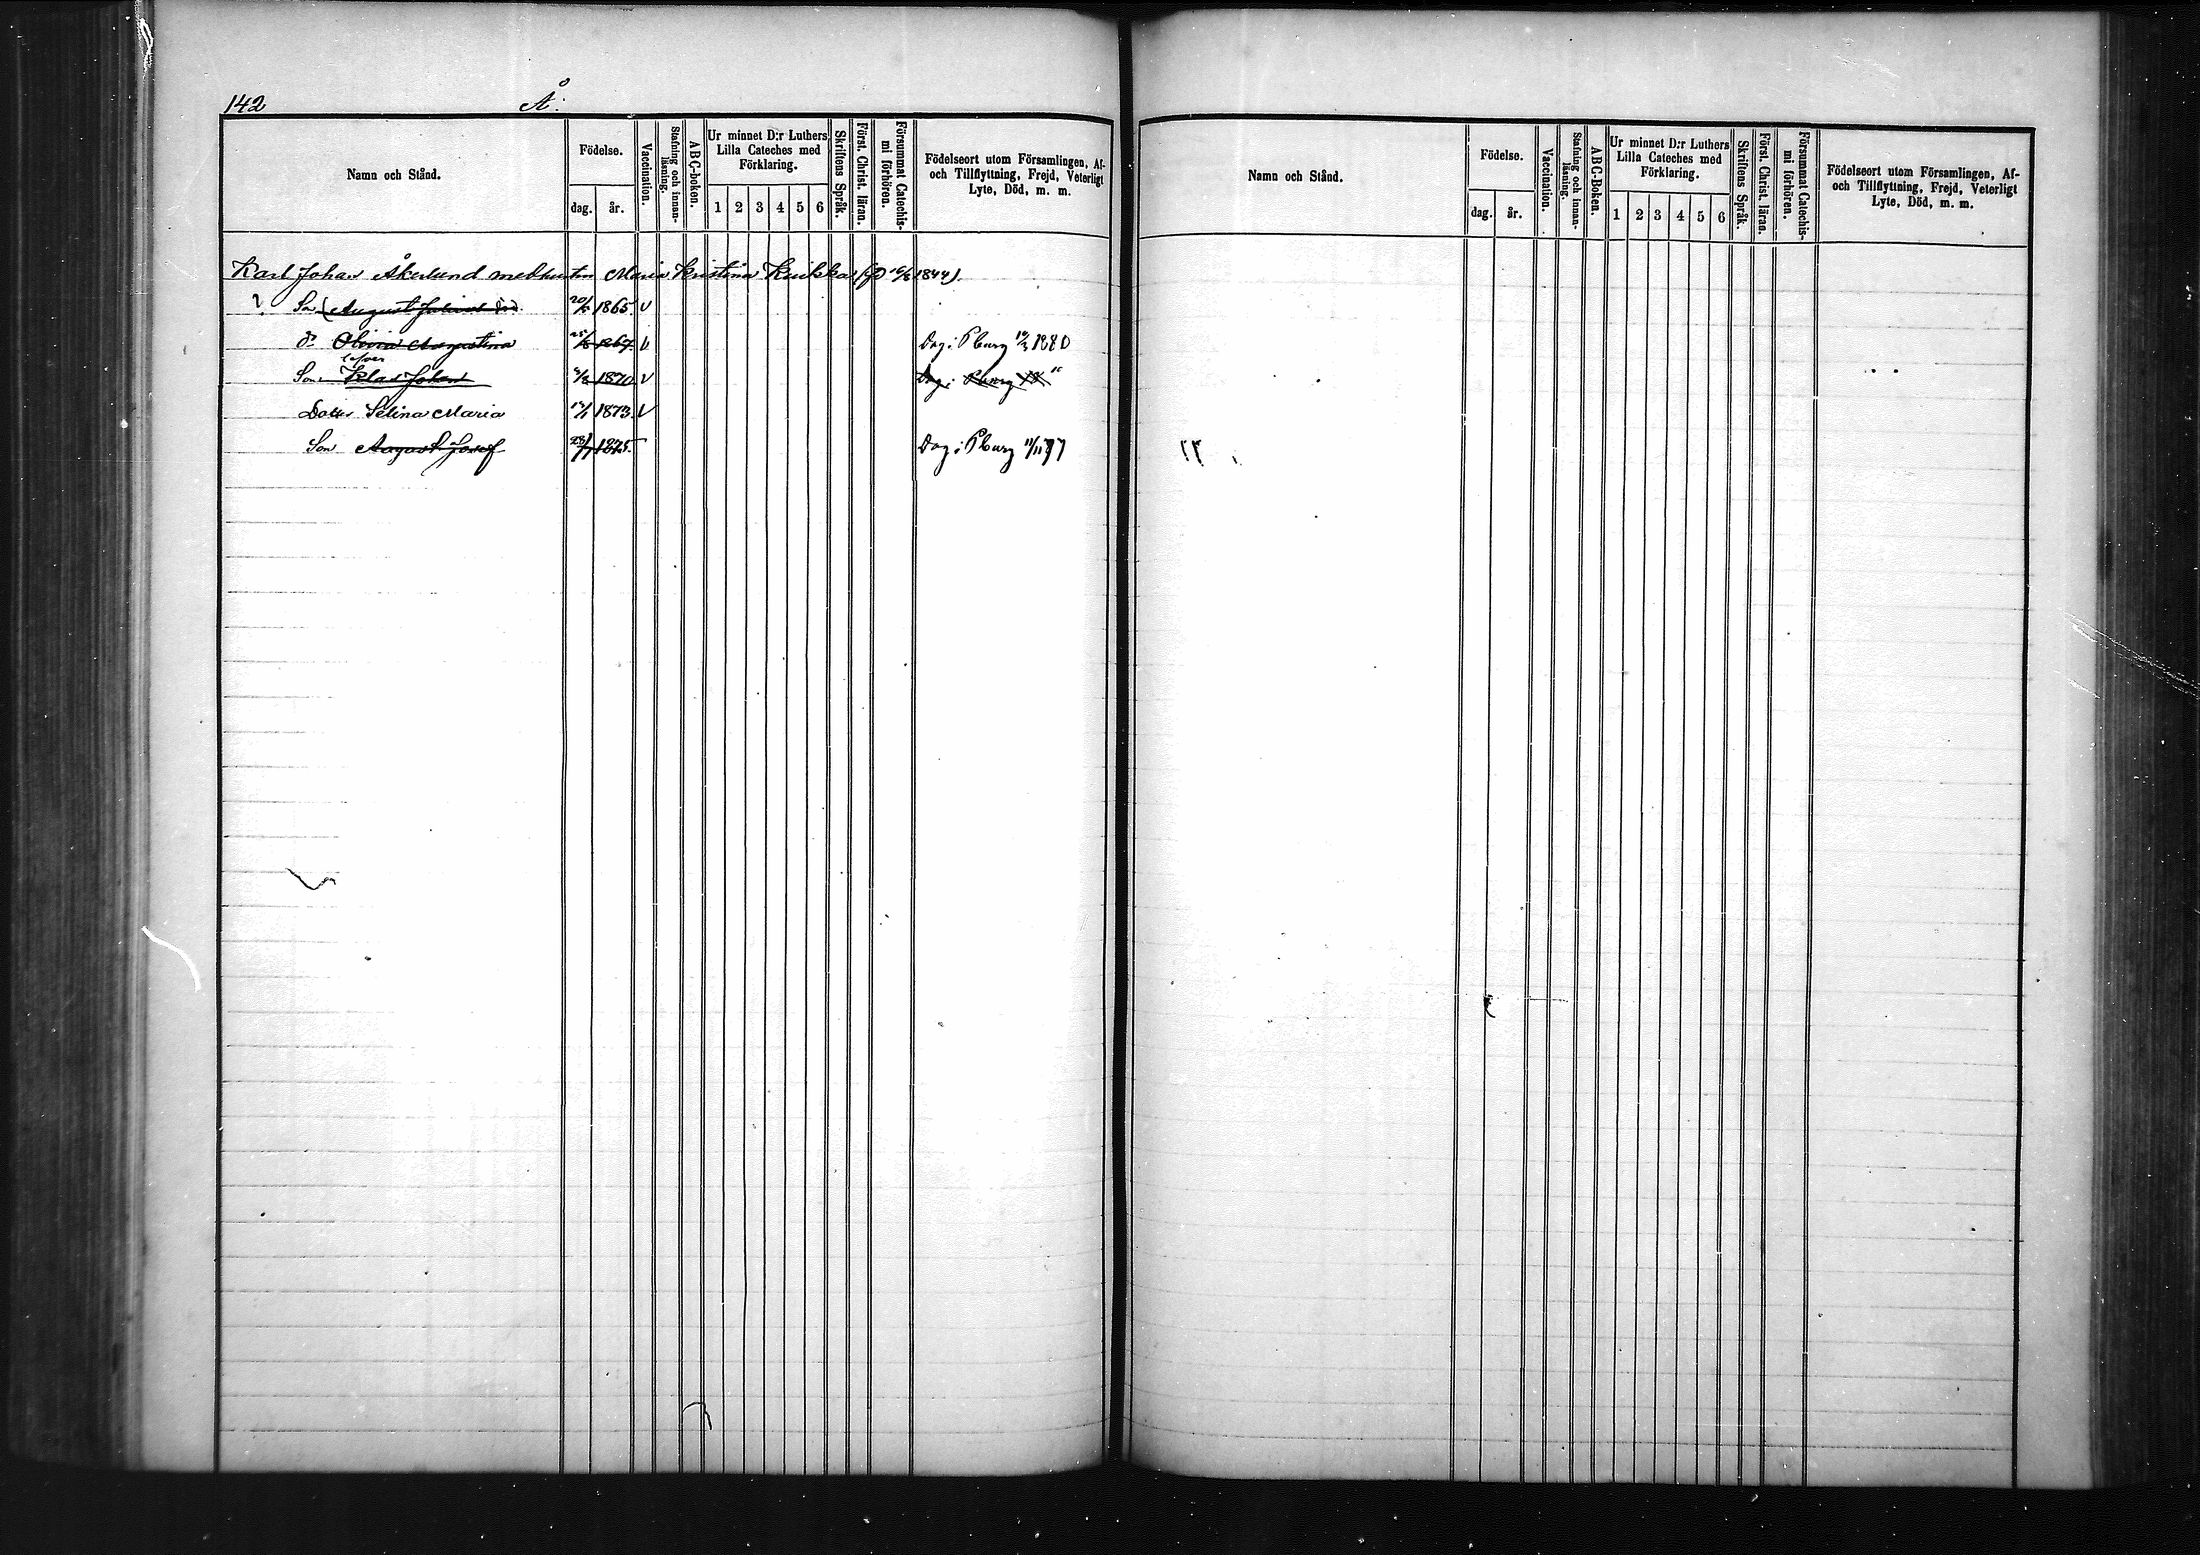 142 Å.
Namn och Stånd. Födelse. dag. år. Vaccination. Stafning och innanläsning. ABC-boken. Ur minnet D:r Luthers Lilla Cateches med Förklaring. 1 2 3 4 5 6 Skriftens Språk. Först. Christ. läran. Försummat Catechismi förhören. Födelseort utom Församlingen, Af- och Tillflyttning, Frejd, Veterligt Lyte, Död, m. m.
Karl Johan Åkerlund med hustru Maria Kristina (f. 1844).
Son (August 1865. v
Olivia Augustina 1867. v Dog i Pburg 1880
Son Klas Johan 1870 v Dog i Pburg "
Dotter Selina Maria 1873. v
Son August Josef 1875. Dog i Pburg 11/11 77
Namn och Stånd. Födelse. dag. år. Vaccination. Stafning och innanläsning. ABC-Boken. Ur minnet D:r Luthers Lilla Cateches med Förklaring. 1 2 3 4 5 6 Skriftens Språk. Först. Christ. läran. Försummat Catechismi förhören. Födelseort utom Församlingen, Af- och Tillflyttning, Frejd, Veterligt Lyte, Död, m. m.